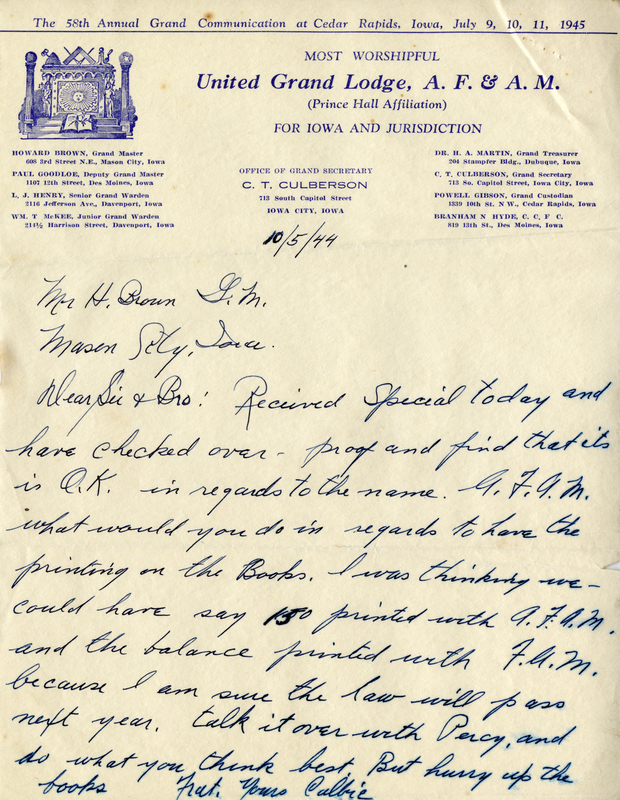 The 58th Annual Grand Communication at Cedar Rapids, Iowa, July 9, 10, 11, 1945
MOST WORSHIPFUL
United Grand Lodge, A. F. & A. M.
(Prince Hall Affiliation)
FOR IOWA AND JURISDICTION
HOWARD BROWN, Grand Master
608 3rd Street N.E., Mason City, Iowa
PAUL GOODLOE, Deputy Grand Master
1107 12th Street, Des Moines, Iowa
L. J. HENRY, Senior Grand Warden
2116 Jefferson Ave., Davenport, Iowa
WM. T McKEE, Junior Grand Warden
214½ Harrison Street, Davenport, Iowa
OFFICE OF GRAND SECRETARY
C. T. CULBERSON
713 South Capitol Street
IOWA CITY, IOWA
DR. H. A. MARTIN, Grand Treasurer
204 Stampfer Bldg., Dubuque, Iowa
C. T. CULBERSON, Grand Secretary
713 So. Capitol Street, Iowa City, Iowa
POWELL GIBSON, Grand Custodian
1339 10th St. N.W., Cedar Rapids, Iowa
BRANHAM N HYDE, C. C. F. C.
819 13th St., Des Moines, Iowa
10/5/44
Mr H. Brown G.M.
Mason City, Iowa.
Dear Sir & Bro! Received Special today and
have checked over - proof and find that its
is O.K. in regards to the name. A. F. A. M.
what would you do in regards to have the
printing on the Books. I was thinking we -
could have say 150 printed with A. F. A. M.
and the balance printed with F. A. M.
because I am sure the law will pass
next year. talk it over with Percy, and
do what you think best. But hurry up the
books Frat. Yours Culbie